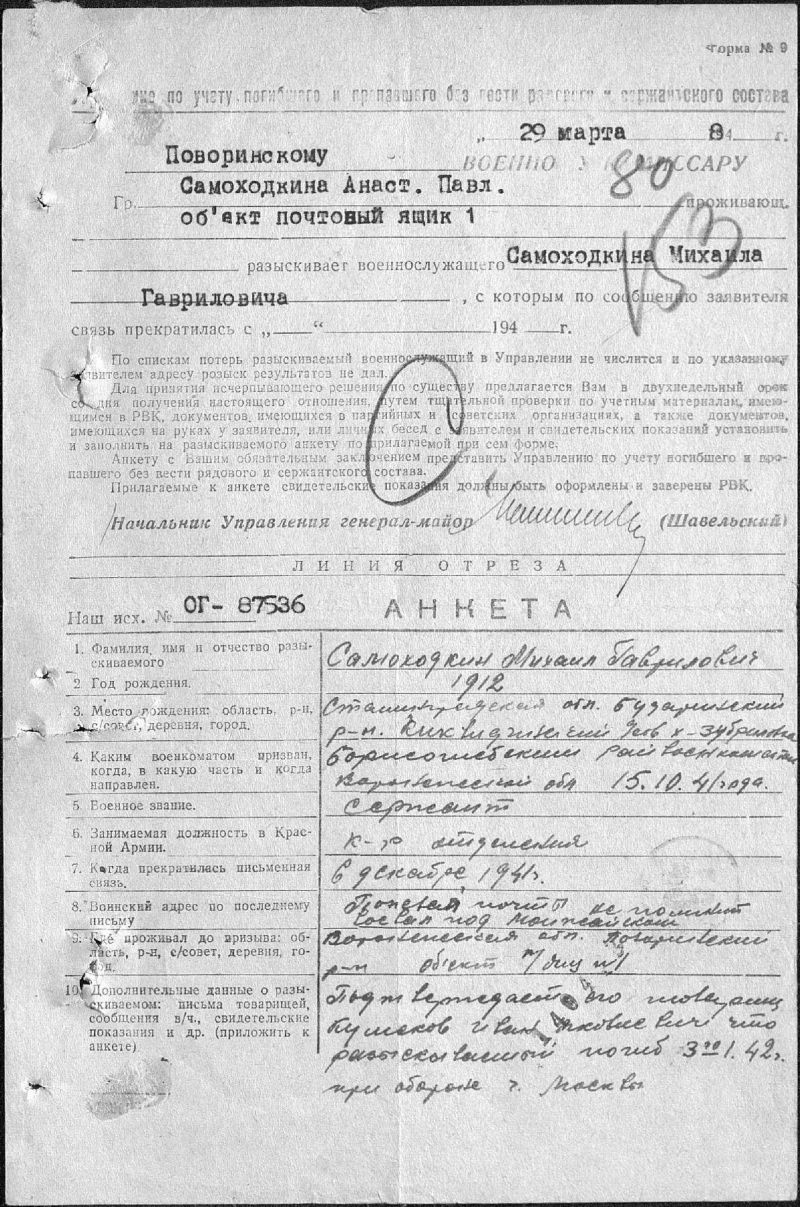 Форма № 9
по учету погибшего и пропавшего без вести рядового и сержантского состава
„ 29 марта 194 8 г.
Поворинскому ВОЕННО У КОМИССАРУ
80
Самоходкина Анаст. Павл.
Гр. проживающ.
об'ект почтовый ящик 1
разыскивает военнослужащего Самоходкина Михаила
Гавриловича , с которым по сообщению заявителя
связь прекратилась с „ “ 194 г.
По спискам потерь разыскиваемый военнослужащий в Управлении не числится и по указанному
заявителем адресу розыск результатов не дал.
Для принятия исчерпывающего решения по существу предлагается Вам в двухнедельный срок
со дня получения настоящего отношения, путем тщательной проверки по учетным материалам, имею-
щимся в РВК, документов, имеющихся в партийных и советских организациях, а также документов,
имеющихся на руках у заявителя, или личных бесед с заявителем и свидетельских показаний установить
и заполнить на разыскиваемого анкету по прилагаемой при сем форме.
Анкету с Вашим обязательным заключением представить Управлению по учету погибшего и про-
павшего без вести рядового и сержантского состава.
Прилагаемые к анкете свидетельские показания должны быть оформлены и заверены РВК.
Начальник Управления генерал-майор (Шавельский)
ЛИНИЯ ОТРЕЗА
Наш исх. № ОГ- 87536 АНКЕТА
1. Фамилия, имя и отчество разы-
скиваемого
Самоходкин Михаил Гаврилович
2 Год рождения.
1912
3. Место рождения: область, р-н,
с/совет, деревня, город.
Сталинградская обл. Бударинский
р-н. х-Зубриловка
4. Каким военкоматом призван,
когда, в какую часть и когда
направлен.
Борисоглебским райвоенкоматом
Воронежской обл 15.10.41 года.
5. Военное звание.
сержант
6. Занимаемая должность в Крас-
ной Армии.
к-р отделения
7. Когда прекратилась письменная
связь.
в декабре 1941г.
8. Воинский адрес по последнему
письму
Полевая почты не помнит
воевал под Можайском
9. Где проживал до призыва: об-
ласть, р-н, с/совет, деревня, го-
род.
Воронежская обл. Поворинский
р-н объект п/ящ №1
10. Дополнительные данные о разы-
скиваемом: письма товарищей,
сообщения в/ч., свидетельские
показания и др. (приложить к
анкете)
Подтверждает его товарищ
Иван Яковлевич что
разыскиваемый погиб 3го 1.42г.
при обороне г. Москвы